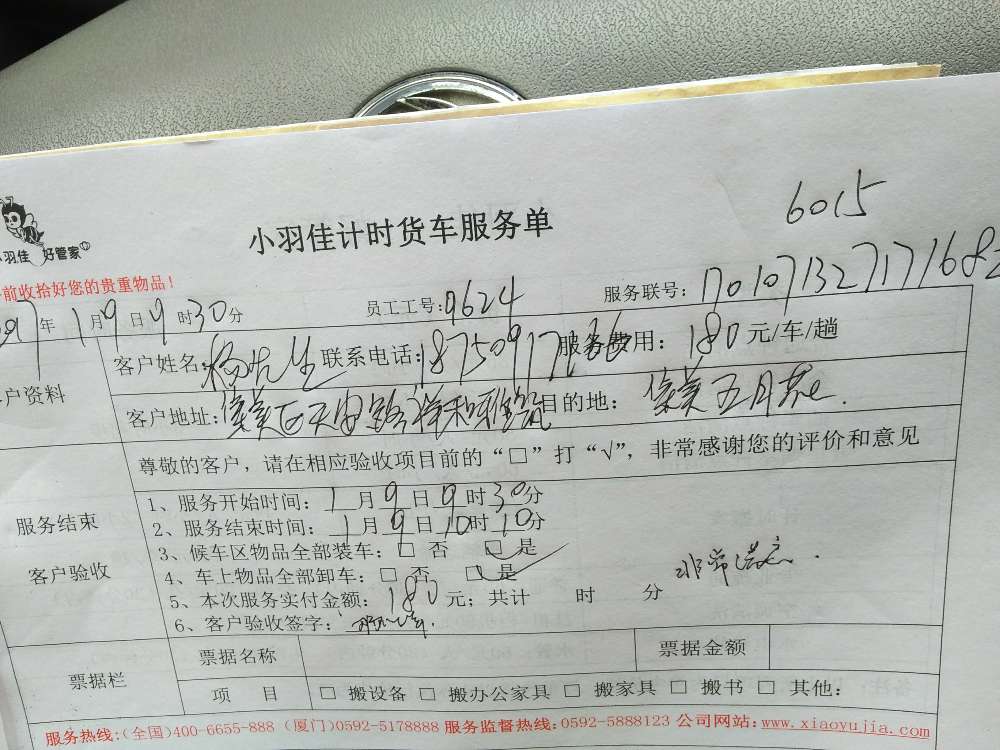 6015
小羽佳计时货车服务单
小羽佳 好管家
前收拾好您的贵重物品！
年1月9日9时30分 员工工号：9624 服务联号：1701071327171682
客户资料
客户姓名：杨先生 联系电话： 服务费用：180元/车/趟
客户地址：集美区天 路祥和雅筑 目的地：集美五月花
服务结束
客户验收
尊敬的客户，请在相应验收项目前的“□”打“√”，非常感谢您的评价和意见
1、服务开始时间：1月9日9时30分
2、服务结束时间：1月9日10时10分
3、候车区物品全部装车：□ 否 □ 是
4、车上物品全部卸车：□ 否 □ 是
5、本次服务实付金额：180元；共计 时 分
非常满意.
6、客户验收签字：
票据栏
票据名称 票据金额
项 目 □ 搬设备 □ 搬办公家具 □ 搬家具 □ 搬书 □ 其他：
服务热线：(全国)400-6655-888 (厦门)0592-5178888 服务监督热线：0592-5888123 公司网站：www.xiaoyujia.com